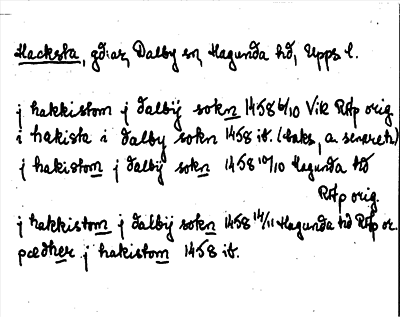 Hacksta, gd:ar, Dalby sn, Hagunda hd, Upps. l.
j hakkistom j dalbÿ sokn 1458 6/10 Vik RAp orig
i hakista i dalby sokn 1458 ib. (baks, a. senereh)
j hakistom j dalbÿ sokn 1458 10/10 Hagunda hd
RAp orig.
j hakkistom j dalbÿ sokn 1458 14/11 Hagunda hd RAp or.
pædher j hakistom 1458 ib.